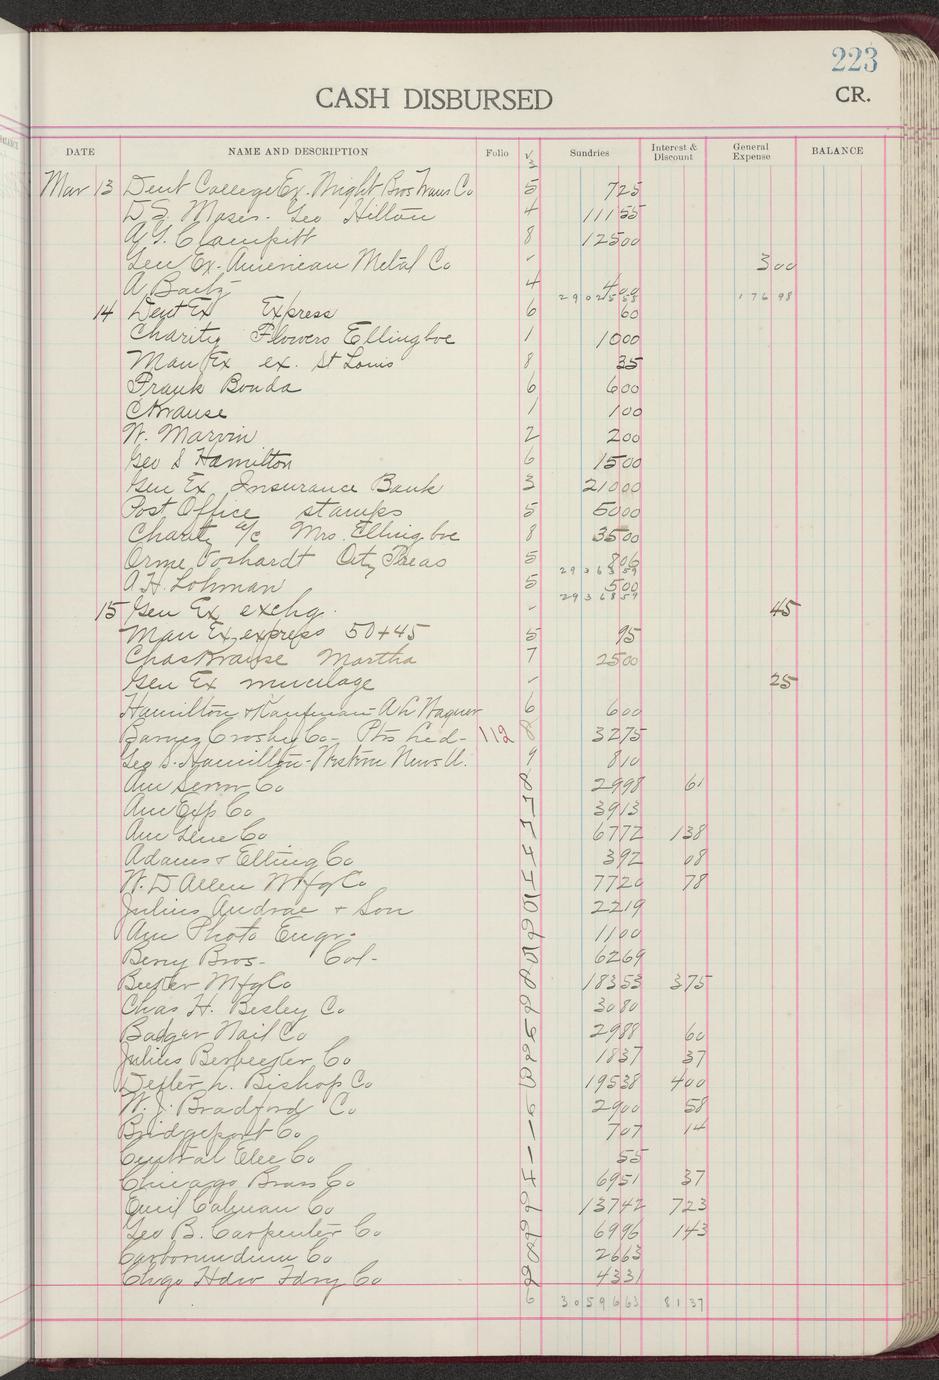 223
CASH DISBURSED
CR.
DATE NAME AND DESCRIPTION Folio √ Sundries Interest & Discount General Expense BALANCE
3
Mar 13 Dent College Ex. Wright Bros Trans Co 5 725
D.S. Moses - Geo Hilton 4 11155
A.G. Clampitt 8 12500
Gen Ex - American Metal Co - 300
A Baetz 4 400
2902558 17698
14 Dent Ex Express 6 60
Charity Flowers Ellingboe 1 1000
Man Ex ex. St Louis 8 35
Frank Bonda 6 600
C Krause 1 100
W. Marvin 2 200
Geo S Hamilton 6 1500
Gen Ex Insurance Bank 3 21000
Post Office stamps 5 5000
Charity a/c Mrs. Ellingboe 8 3500
Orme Boshardt City Treas 5 806
2936359
A.H. Lohman 5 500
2936859
15 Gen Ex exchg. - 45
Man Ex express 50+45 5 95
Chas Krause Martha 7 2500
Gen Ex mucilage - 25
Hamilton & Kaufman - A L Wagner 6 600
Barnes Crosby Co - Pts Led - 112 8 3275
Geo S. Hamilton - Western News U. 9 810
Am Screw Co 8 2998 61
Am Exp Co 5 3913
Am Glue Co 5 6772 138
Adams & Elting Co 5 392 08
W. D Allen Mfg Co 5 7720 78
Julius Andrae & Son 10 2219
Am Photo Engr. 6 1100
Berry Bros. Col - 10 6269
Beyer Mfg Co 8 18353 375
Chas H. Besley Co 8 3080
Badger Nail Co 5 2988 60
Julius Berbecker Co 8 1837 37
L. Bishop Co 19538 400
W. J. Bradford Co 5 2900 58
Bridgeport Co - 707 14
Central Elec Co - 55
Chicago Brass Co 5 6951 37
Emil Calman Co 6 13742 723
Geo B. Carpenter Co 6 6996 143
Carborundum Co 8 2663
Chgo Hdw Fdry Co 6 4331
6 3059663 8137